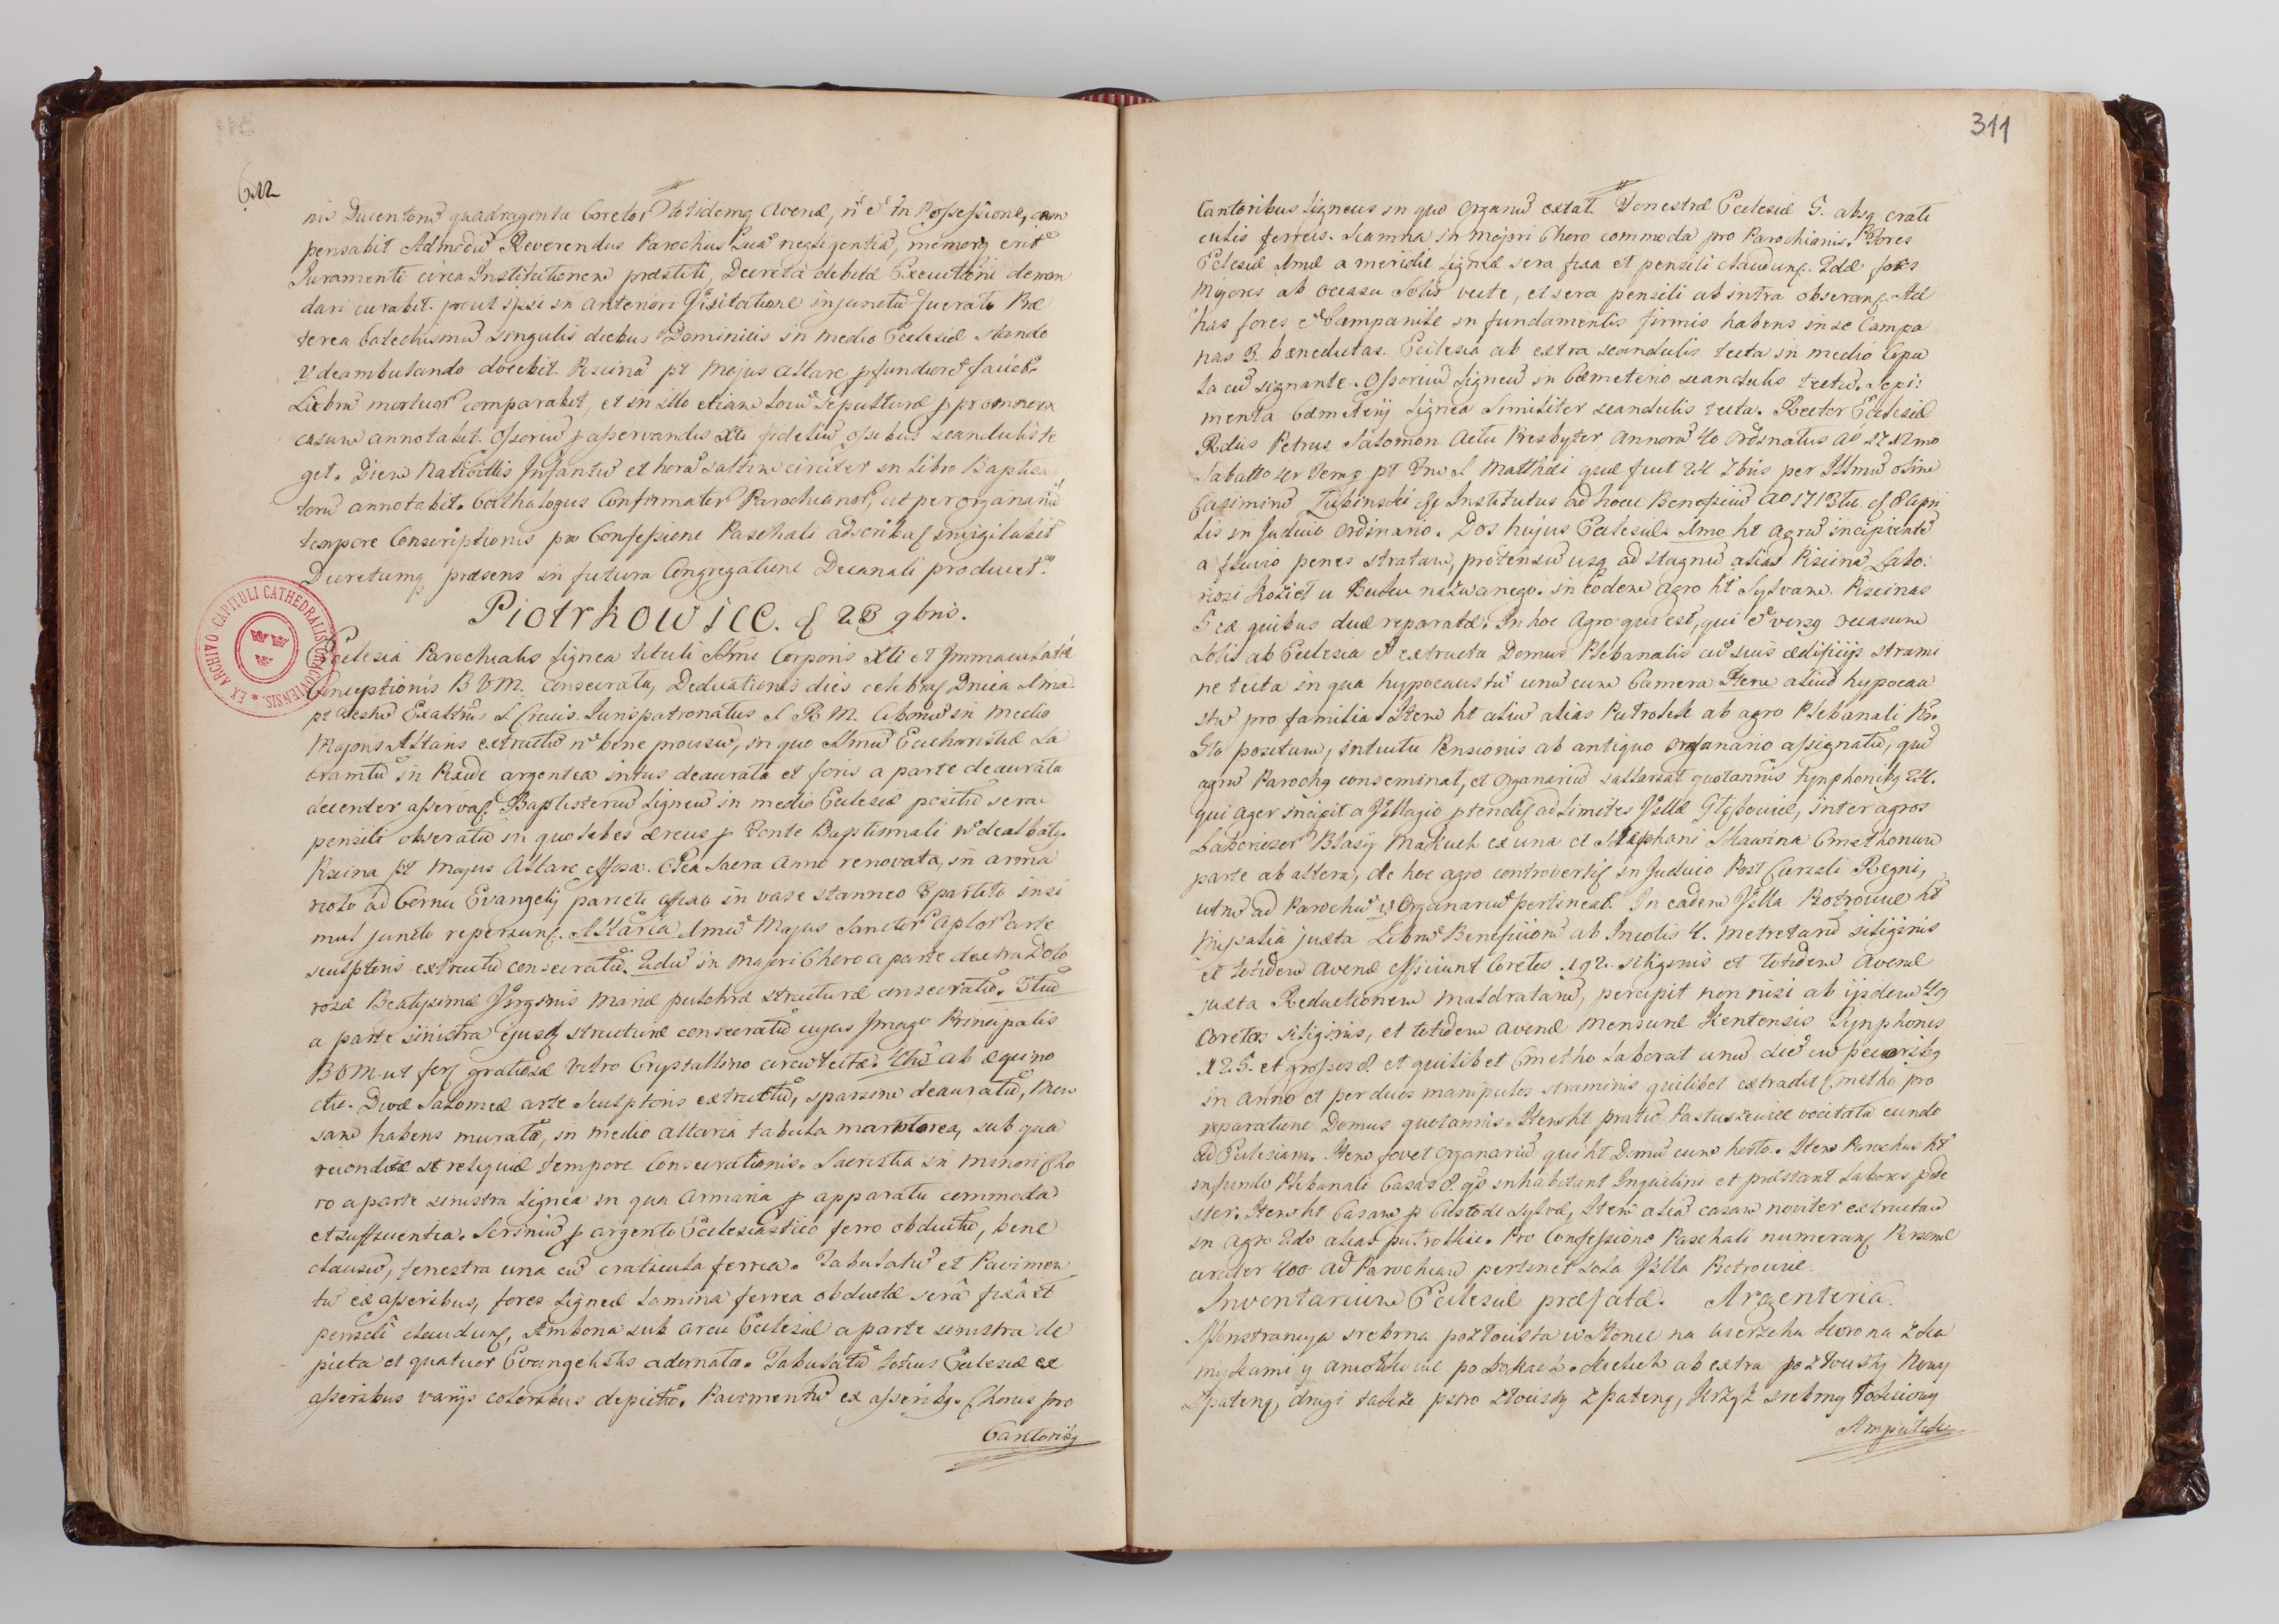 612
nis Ducentorũ quadraginta Coretor totidemq Avenæ, in Possessione, com
pensabit Admodũ Reverendus Parochus Suã negligentiã, memorq erit
Juramenti circa Institutionem præstiti, Decreta debitæ Executioni deman
dari curabit. prout ipsi in anteriori Visitatione injunctũ fuerat. Præ
terea Catechismũ singulis diebus Dominicis in medio Ecclesiæ stando
deambulando docebit. Piscinã pt Majus Altare profundiorẽ faciet.
Librũ mortuor comparabit, et in illo etiam locũ sepulturæ p promnem
casum annotabit. Ossoriũ p asservandis Xti fidelium ossibus scandulis te
get. Diem Nativitatis Infantũ et horã saltim circiter in Libro Baptisa
torũ annotabit. Cathalogus Confirmator Parochianor, ut per organariũ
tempore Conscriptionis pro Confessione Paschali adscribat invigilabit
Decretumq præsens in futura Congregatione Decanali producet.
Piotrkowice. d 23 9bris.
Ecclesia Parochialis lignea tituli SSmi Corporis Xti et Immaculatæ
Conceptionis B V M. consecrata, Dedicationis dies celebrat Dnica Ima
pt Festũ Exaltnis S Crucis. Jurispatronatus S R M. Ciboriũ in Medio
Majoris Altaris extructũ bene provisũ, in quo SSmũ Eucharistiæ Sa
cramtũ in Pixide argentea intus deaurata et foris a parte deaurata
decenter asservat. Baptisteriũ ligneũ in medio Ecclesiæ positũ sera
pensili obseratũ in quo lebes æreus p Fonte Baptismali dealbatq.
Piscina pt Majus Altare effossa. Olea Sacra Anno renovata, in arma
riolo ad Cornu Evangelij parieti affixo in vase stanneo partito insi
mul juncto reperiunt. Altaria Imũ Majus Sanctor Aplor arte
sculptoris extructũ consecratũ. 2dũ in Majori Choro a parte dextra Dolo
rosæ Beatissimæ Virginis Mariæ pulchræ structuræ consecratũ. 3tiũ
a parte sinistra ejusd structuræ consecratũ cujus Imago Principalis
B V M ut fert gratiosæ vitro Crystallino circũtecta. 4tũ ab æquino
ctie. Divæ Salomeæ arte Sculptoris extructũ, sparsim deauratũ, Men
sam habens muratã, in medio altaria tabula marmorea, sub qua
reconditæ st reliquiæ tempore Consecrationis. Sacristia in Minori Cho
ro a parte sinistra lignea in qua Armaria p apparatu commoda
et sufficientia. Scriniũ p argento Ecclesiastico ferro obductũ, bene
clausũ, fenestra una cũ craticula ferrea. Tabulatũ et Pavimen
tũ ex asseribus, fores ligneæ lamina ferrea obductæ serâ fixâ et
pensili claudunt, Ambona sub arcu Ecclesiæ a parte sinistra de
picta et quatuor Evangelistis adornata. Tabulatũ totius Ecclesiæ ex
asseribus varijs coloribus depictũ. Pavimentũ ex asseribq. Chorus pro
Cantoribq
EX ARCHIVO CAPITULI CATHEDRALIS CRACOVIENSIS
311
Cantoribus ligneus in quo Organũ extat. Fenestræ Ecclesiæ 5. absq crati
culis ferreis. Scamna in Majori Choro commoda pro Parochianis. Fores
Ecclesiæ Imæ a meridie ligneæ sera fixa et pensili claudunt. 2dæ fores
Majores ab occasu Solis vecte, et sera pensili ab intra obserant. Ad
has fores Campanile in fundamentis firmis habens in se Campa
nas 3. benedictas. Ecclesia ab extra scandulis tecta in medio Copu
la cũ signante. Ossoriũ ligneũ in Cæmeterio scandulis tectũ. Sepi
menta Cæmeterij lignea similiter scandulis tecta. Rector Ecclesiæ
Rdus Petrus Salomon Actu Presbyter Annorũ 40 Ordinatus
Sabatto pt S Matthæi quæ fuit 24 7bris per Illmũ olim
Casimirũ Łubinski Institutus ad hocce Beneficiũ Ao 1713 d 8 Apri
lis in Judicio Ordinario. Dos hujus Ecclesiæ. Imo ht Agrũ incipientẽ
a fluvio penes stratam, protensũ usq ad stagnũ alias Piscinã Labo:
riosi Kozieł u Buku nazwanego. in Eodem Agro ht Sylvam. Piscinas
5 ex quibus duæ reparatæ. In hoc Agro qui est, qui versq occasum
Solis ab Ecclesia extructa Domus Plebanalis cũ suis ædificijs strami
ne tecta in qua hypocaustũ unũ cum Camera. Item aliud hypocau
stũ pro familia. Item ht aliũ alias Putrolek ab agro Plebanali
positum, intuitu Pensionis ab antiquo organario assignatũ, quẽ
agrũ Parochq conseminat, et Organariũ sallariat quotannis tymphonibq 24.
qui ager incipit a Villagio ptendit ad limites Villæ Głębowice, inter agros
Laboriosor Blasij Matiuch ex una et Stephani Skawina Cmethonum
parte ab altera, de hoc agro controvertit in Judicio Post Curiali Regni,
utrũ ad Parochũ v Organariũ pertineat. In eadem Villa Piotrowice ht
Missalia juxta Librũ Beneficiorũ ab Incolis 4. Metretarũ siliginis
et totidem avenæ efficiunt Coretos 192. siliginis et totidem Avenæ
juxta Reductionem Maldratarũ, percipit non nisi ab ijsdem 49
coretos siliginis, et totidem avenæ mensuræ Kentensis Tymphones
125. et grossos 8. et quilibet Cmetho laborat unũ diẽ cũ pecoribq
in Anno et per duos manipulos straminis quilibet extradit Cmetho pro
reparatione Domus quotannis. Item ht pratũ Pastuszewice vocitatũ eundo
ad Ecclesiam. Item fovet Organariũ qui ht Domũ cum horto. Item Parochus ht
in fundo Plebanali Casas 8. qs inhabitant Inquilini et præstant labores pede
ster. Item ht Casam p Custode Sylvæ, Item aliã casam noviter extructam
in agro 2do alias putrolkie. Pro Confessione Paschali numerant Personæ
circiter 400 ad Parochiam pertinet sola Villa Piotrowice.
Inventarium Ecclesiæ præfatæ. Argenteria.
Monstrancya srebrna pozłocista w słonce na wierzchu korona z ka
myskami y aniołkowie po bokach. Kielich ab extra pozłocisty Nowy
z pateną, drugi także pstro złocisty z pateną, krzyż srebrny
Ampułek